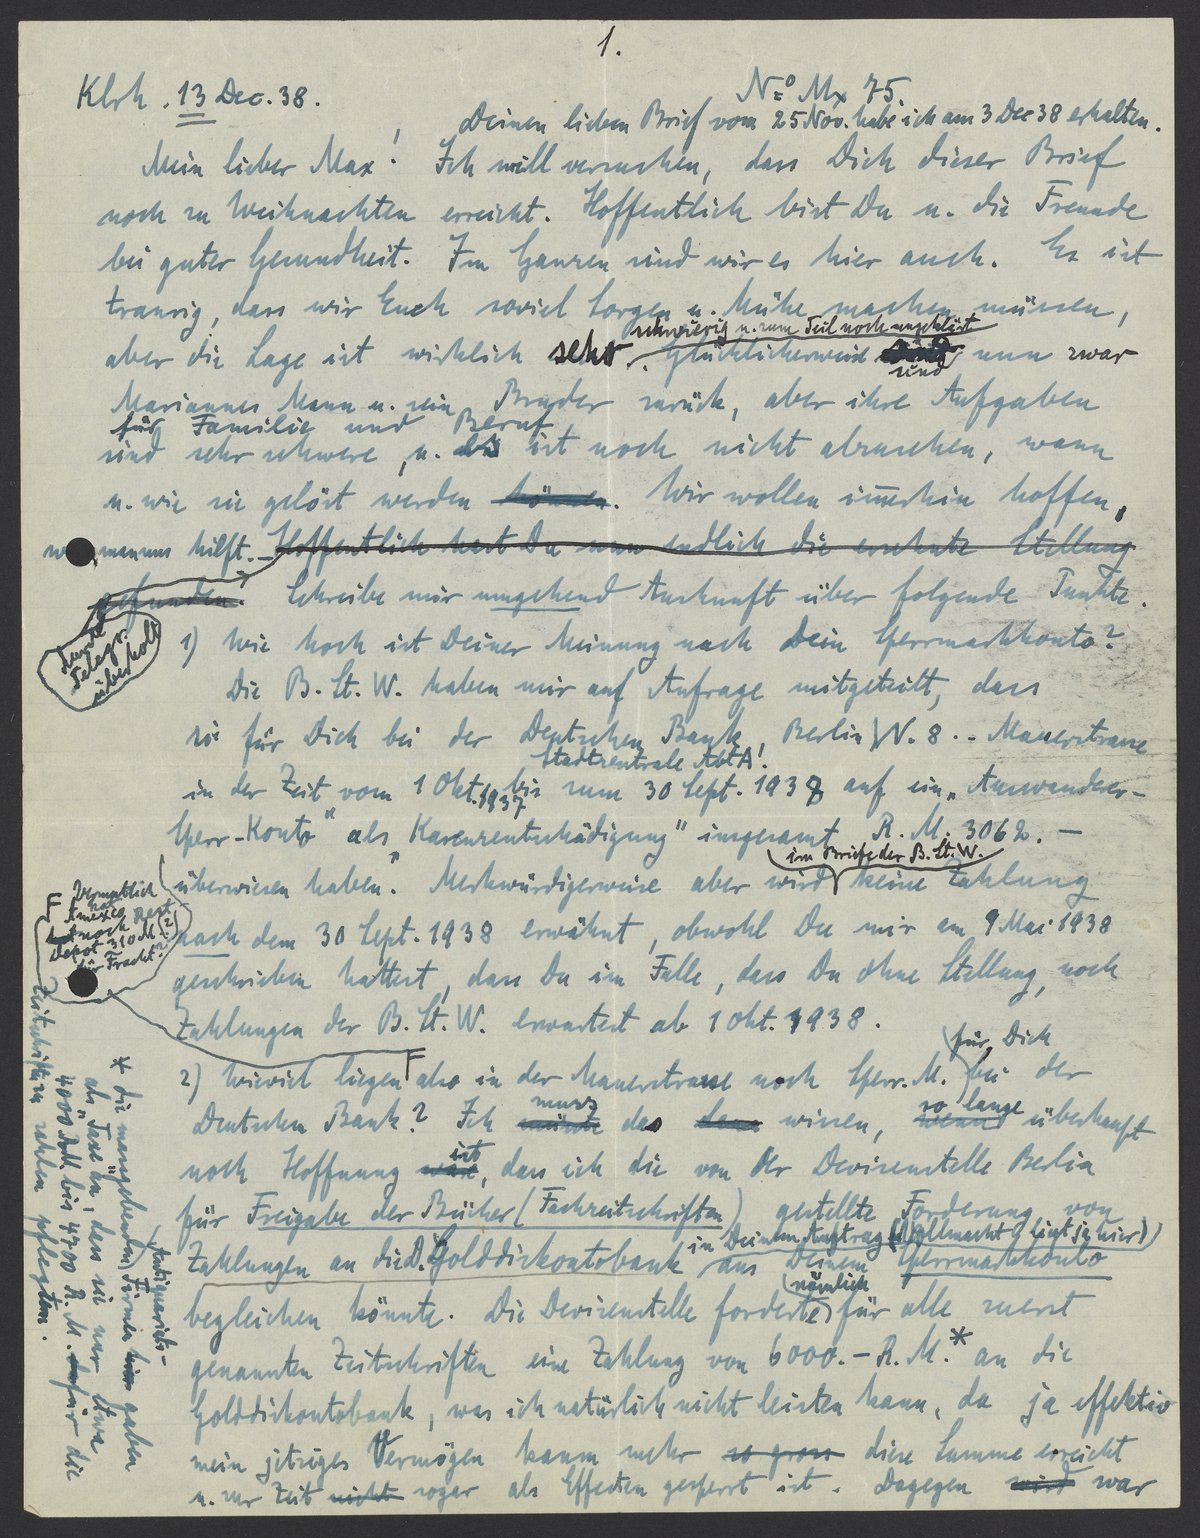 1.
Klrh. 13 Dec. 38.
No Mx 75.
Deinen lieben Brief vom 25 Nov. habe ich am 3 Dec 38 erhalten.
Mein lieber Max! Ich will versuchen, dass Dich dieser Brief
noch zu Weihnachten erreicht. Hoffentlich bist Du u. die Freunde
bei guter Gesundheit. Im Ganzen sind wir es hier auch. Es ist
traurig, dass wir Euch soviel Sorgen u. Mühe machen müssen,
schwierig u. zum Teil noch ungeklärt
aber die Lage ist wirklich sehr. Glücklicherweise sind nun zwar
Mariannes Mann u. sein Bruder zurück, aber ihre Aufgaben
für Familie und Beruf
sind sehr schwere, u. es ist noch nicht abzusehen, wann
u. wie sie gelöst werden können. Wir wollen immerhin hoffen,
man uns hilft. – Hoffentlich hast Du nun endlich die ersehnte Stellung
gefunden. Schreibe mir umgehend Auskunft über folgende Punkte.
durch Telegr. überholt
1) Wie hoch ist Deiner Meinung nach Dein Sperrmarkkonto?
Die B. St. W. haben mir auf Anfrage mitgeteilt, dass
sie für Dich bei der Deutschen Bank, Berlin W. 8. – Mauerstrasse
Stadtzentrale Abt A!
in der Zeit vom 1 Okt. 1937 bis zum 30 Sept. 1938 auf ein „Auswanderer-
Sperr-Konto" als „Karenzentschädigung" insgesamt R. M. 3062. –
im Briefe der B. St. W.
überwiesen haben. Merkwürdigerweise aber wird keine Zahlung
nach dem 30 Sept. 1938 erwähnt, obwohl Du mir am 9 Mai 1938
geschrieben hattest, dass Du im Falle, dass Du ohne Stellung, noch
Zahlungen der B. St. W. erwartest ab 1 Okt. 1938.
F Vermutlich
hat
Amexco Rest
noch (?)
Depot 310 M
für Fracht?
für Dich
2) Wieviel liegen F also in der Mauerstrasse noch Sperr. M. bei der
muss so lange
Deutschen Bank? Ich müsste das dann wissen, wenn überhaupt
ist
noch Hoffnung wäre, dass ich die von der Devisenstelle Berlin
für Freigabe der Bücher (Fachzeitschriften) gestellte Forderung von
in Deinem Auftrag (Vollmacht liegt ja hier)
Zahlungen an die D. Golddiskontobank aus Deinem Sperrmarkkonto
nämlich
begleichen könnte. Die Devisenstelle forderte für alle zuerst
genannten Zeitschriften eine Zahlung von 6000. – R. M.* an die
Golddiskontobank, was ich natürlich nicht leisten kann, da ja effektiv
mein jetziges Vermögen kaum mehr so gross diese Summe erreicht
u. zur Zeit nicht sogar als Effecten gesperrt ist. Dagegen wird war
* die massgebenden Antiquariats-Firmen hier gaben
als Taxe an, dass sie nur etwa
4000 R.M. bis 4700 R. M. für die
Zeitschriften zahlen pflegten.